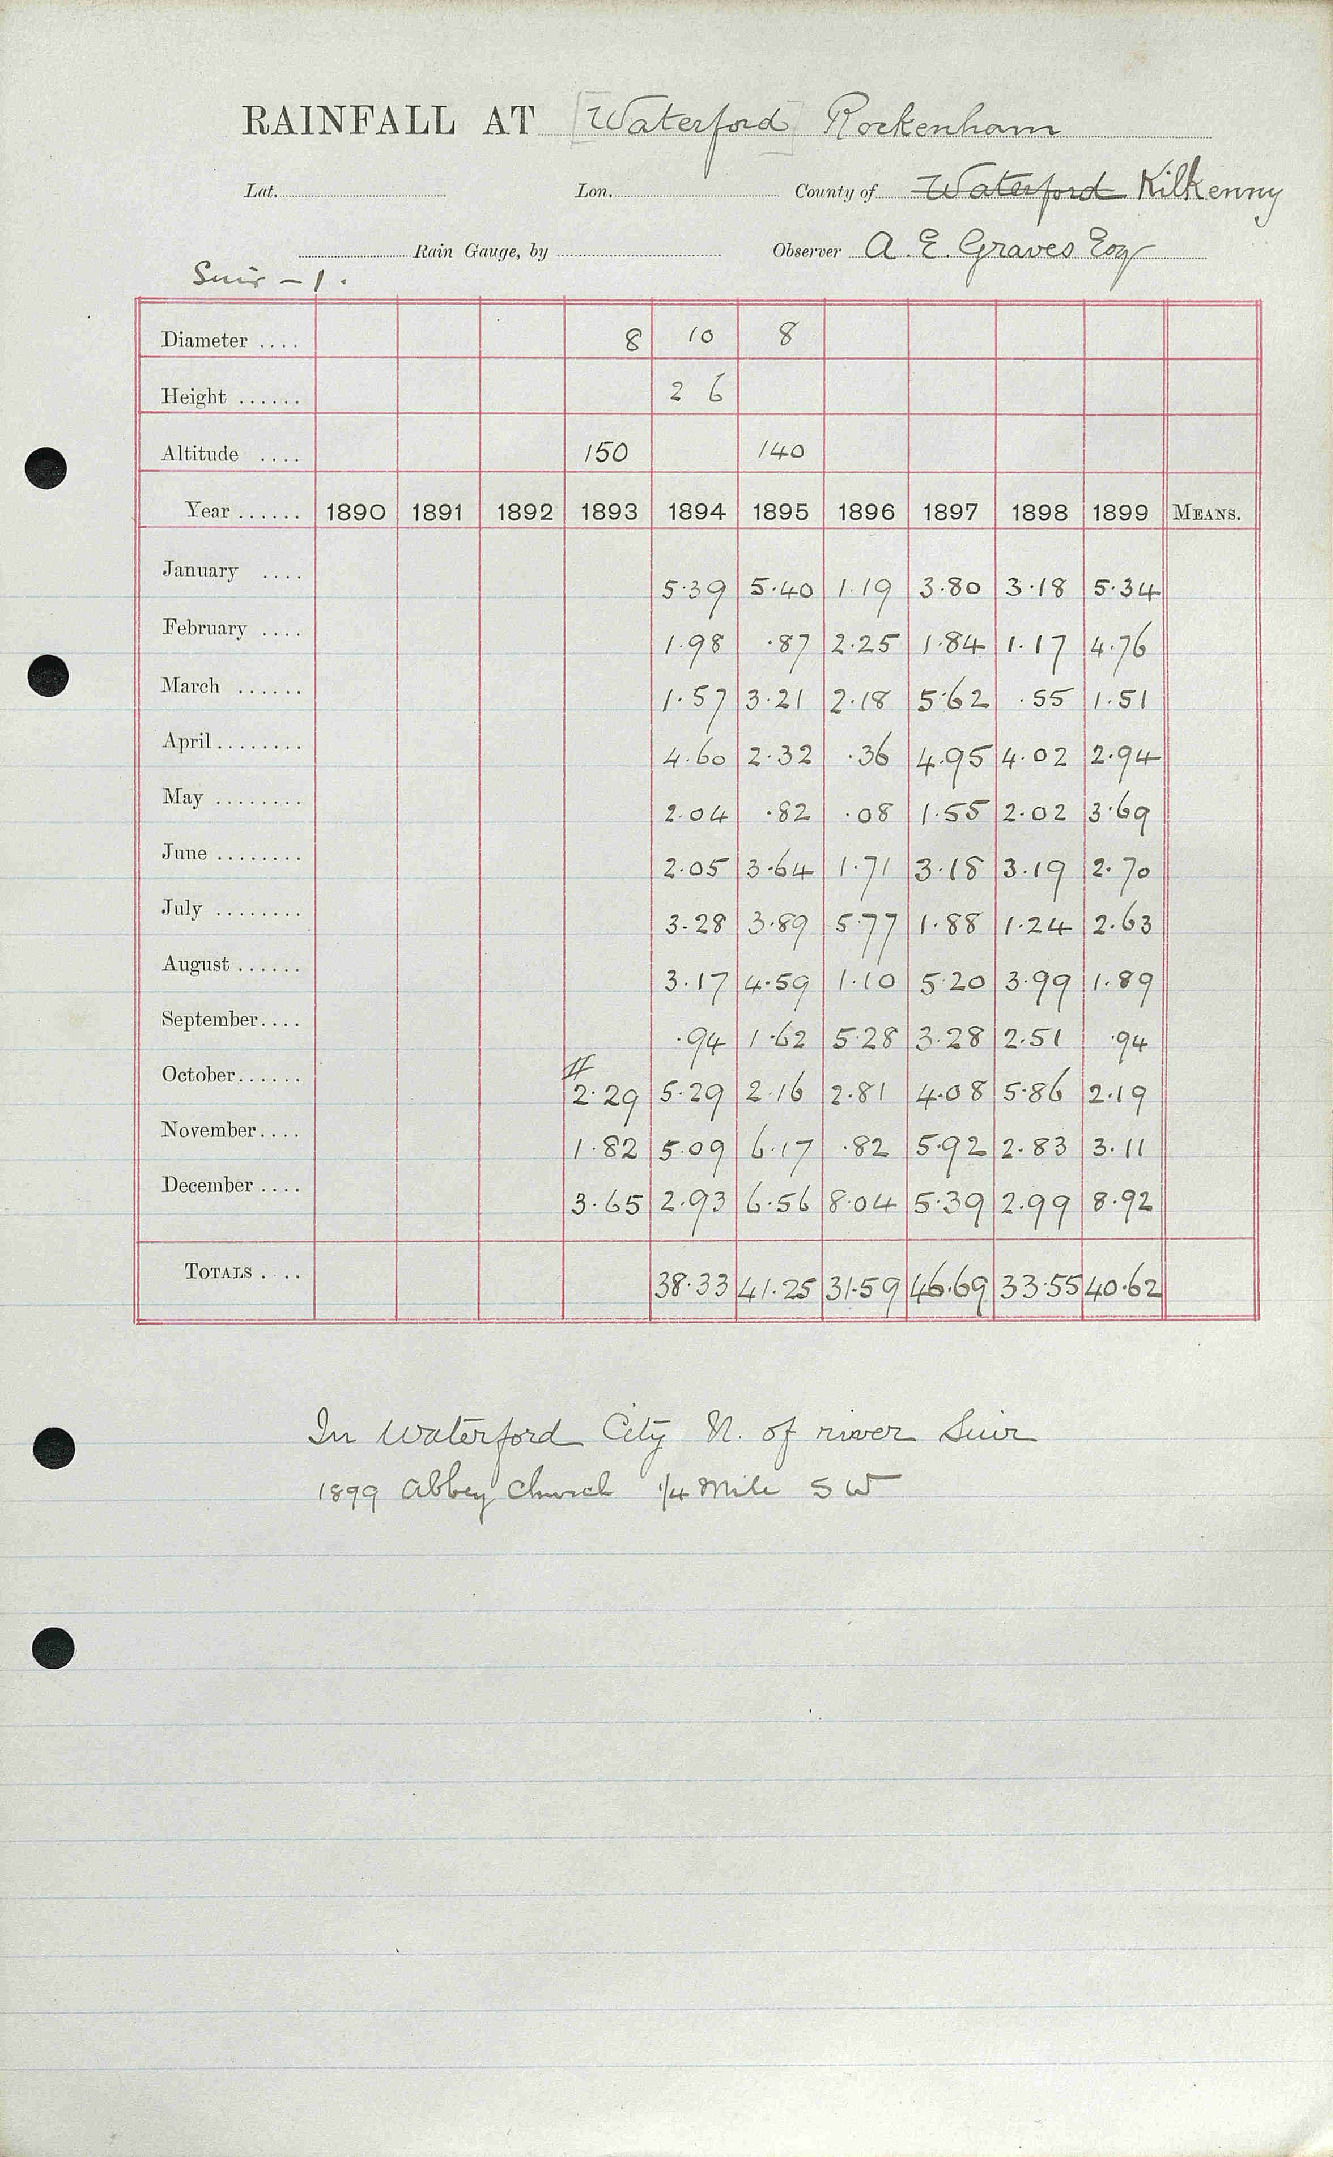 RAINFALL AT [Waterford] Rockenham
Lat. Lon. County of Waterford Kilkenny
Rain Gauge, by Observer A. E. Graves Esq
Suir - 1.
Diameter .... 8 10 8
Height ...... 2 6
Altitude .... 150 140
Year ...... 1890 1891 1892 1893 1894 1895 1896 1897 1898 1899 MEANS.
January .... 5.39 5.40 1.19 3.80 3.18 5.34
February .... 1.98 .87 2.25 1.84 1.17 4.76
March ...... 1.57 3.21 2.18 5.62 .55 1.51
April ........ 4.60 2.32 .36 4.95 4.02 2.94
May ........ 2.04 .82 .08 1.55 2.02 3.69
June ........ 2.05 3.64 1.71 3.18 3.19 2.70
July ........ 3.28 3.89 5.77 1.88 1.24 2.63
August ...... 3.17 4.59 1.10 5.20 3.99 1.89
September.... .94 1.62 5.28 3.28 2.51 .94
October...... 2.29 5.29 2.16 2.81 4.08 5.86 2.19
November.... 1.82 5.09 6.17 .82 5.92 2.83 3.11
December .... 3.65 2.93 6.56 8.04 5.39 2.99 8.92
TOTALS .... 38.33 41.25 31.59 46.69 33.55 40.62
In Waterford City N. of river Suir
1899 Abbey Church 1/4 Mile S W